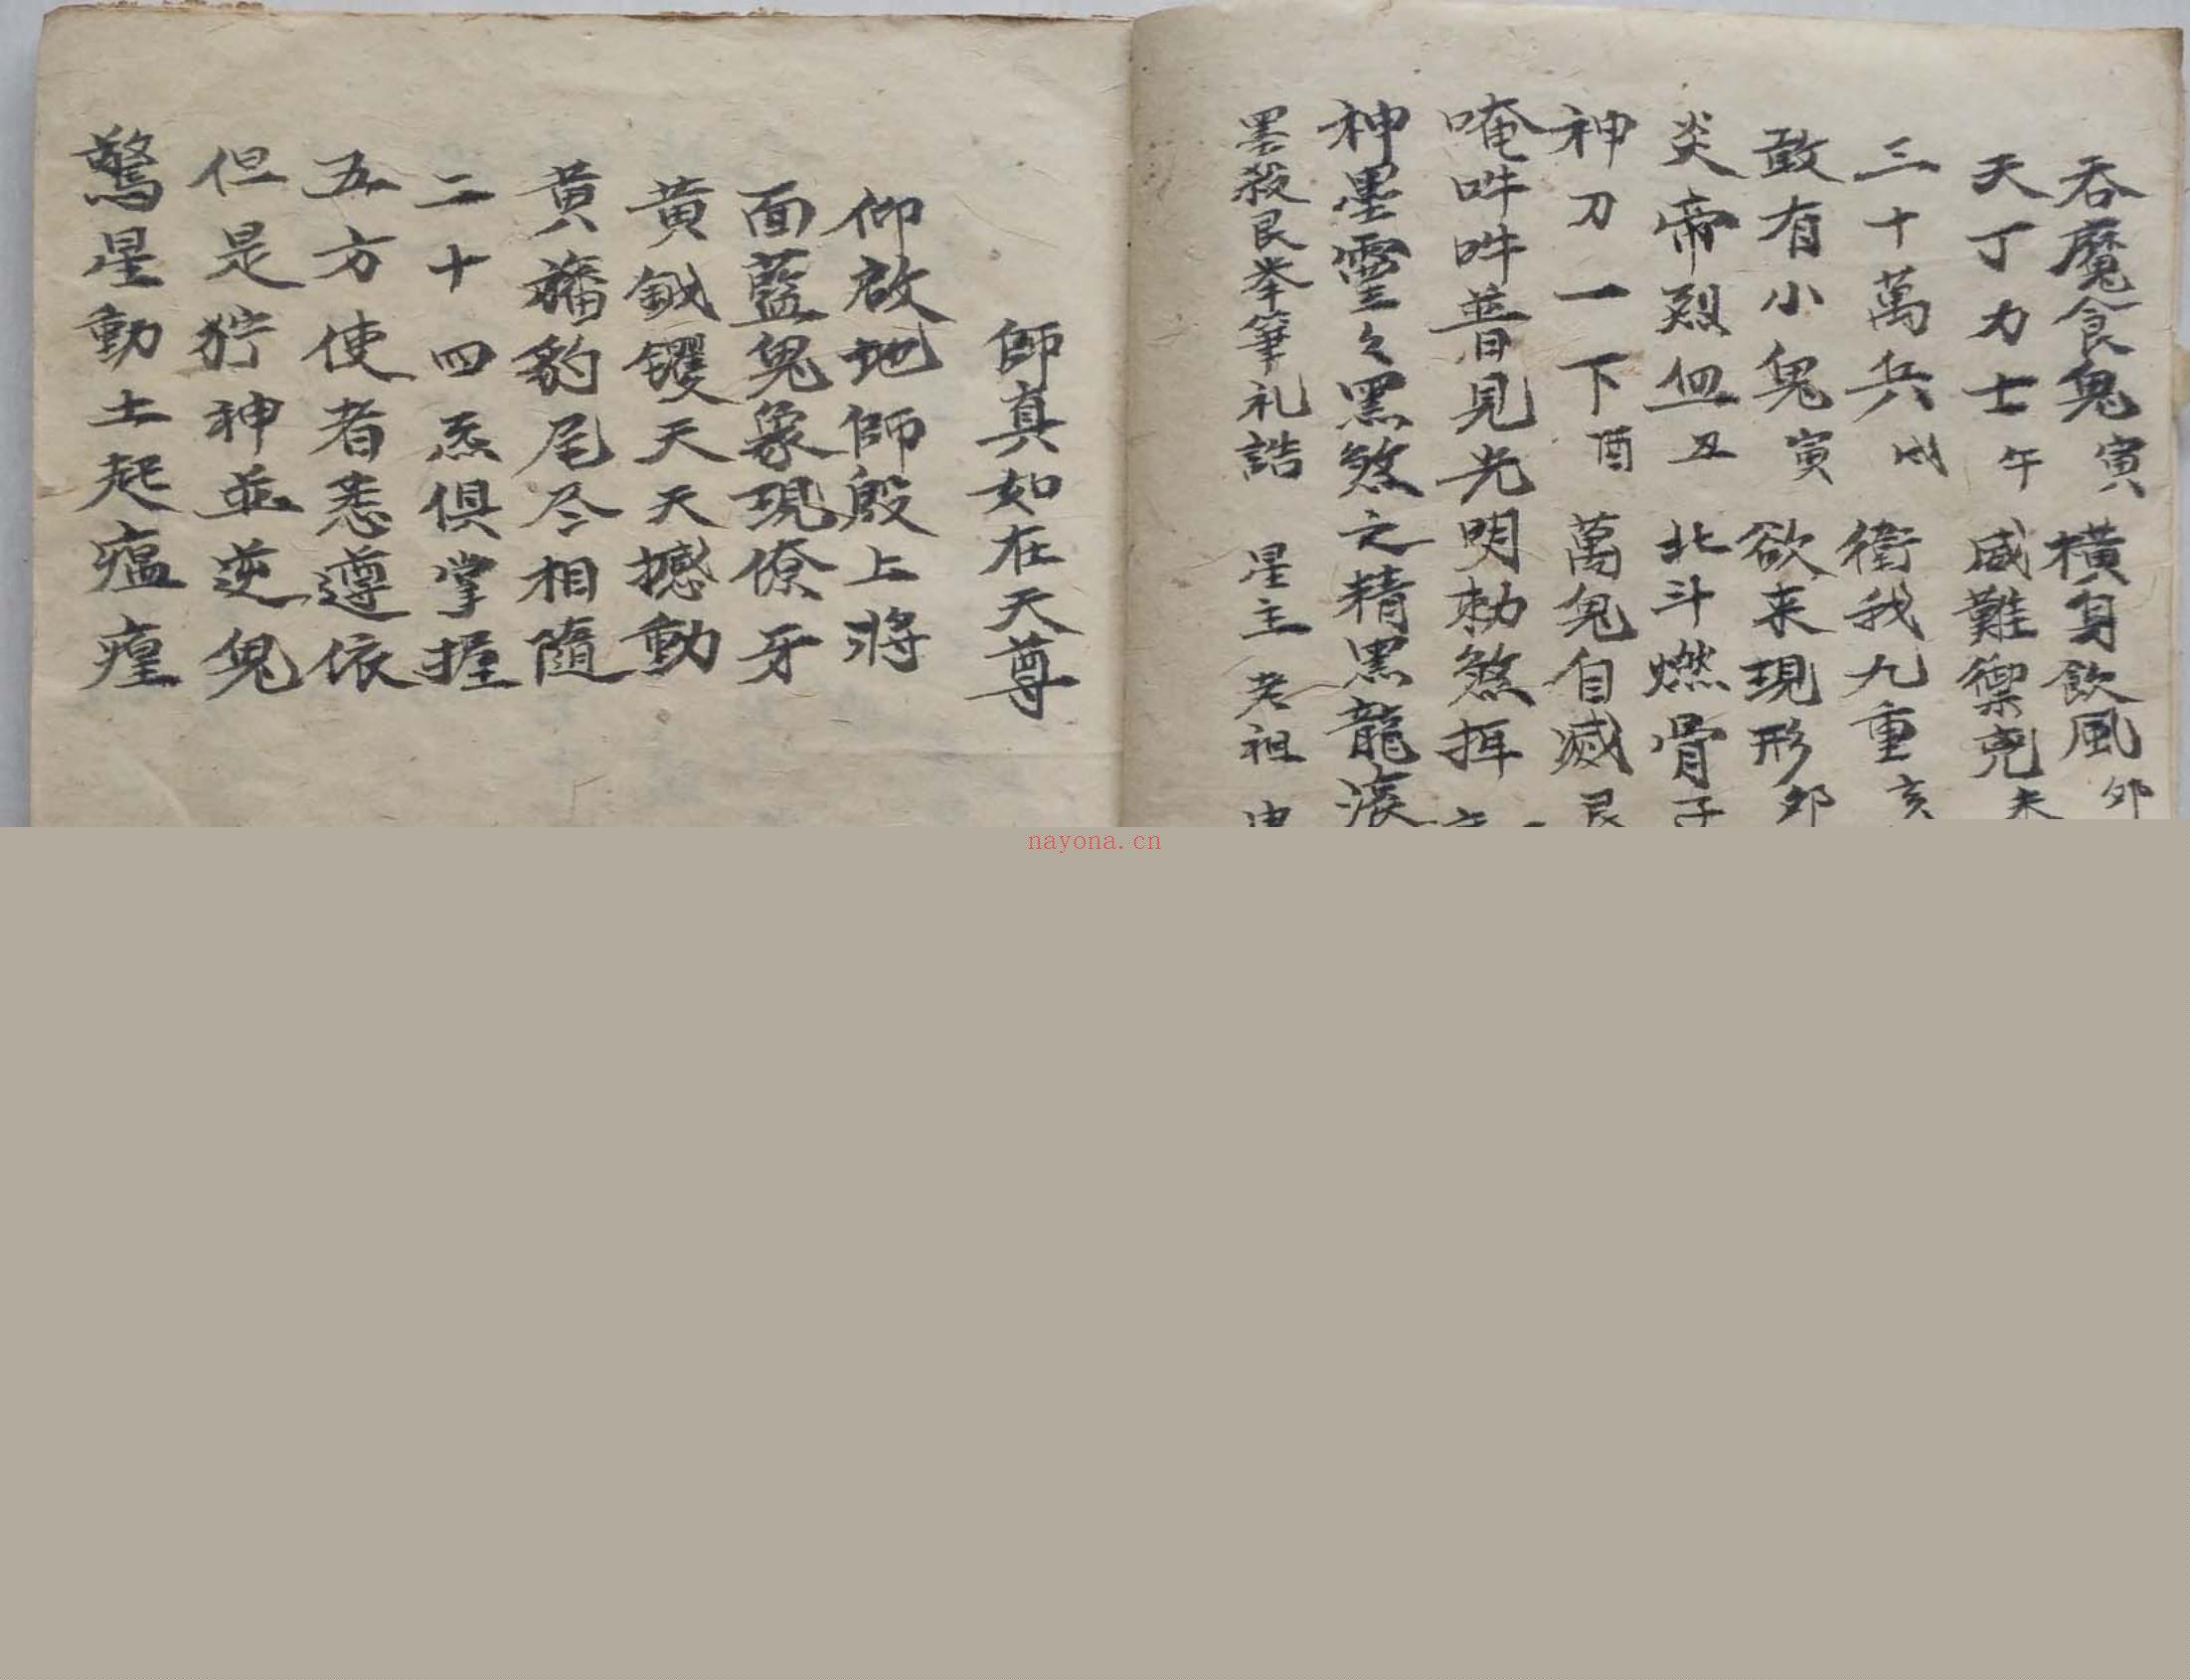 吞魔食鬼寅 橫身飲風卯
天丁力士午 威難禦兇未
三十萬兵戌 衛我九重亥
敢有小鬼寅 欲來現形卯
炎帝烈血丑 北斗燃骨子
神刀一下酉 萬鬼自滅艮
唵吽吽普見光明勅煞挥
神墨靈々黑煞之精黑龍滾
墨殺艮举筆礼誥 星主老祖
師真如在天尊
仰啟地師殷上將
面藍鬼象現僚牙
黄鉞钁天天撼動
黄旛豹尾尽相隨
二十四炁俱掌握
五方使者悉遵依
但是狞神並逆鬼
驚星動土起瘟㾮
nayona.cn